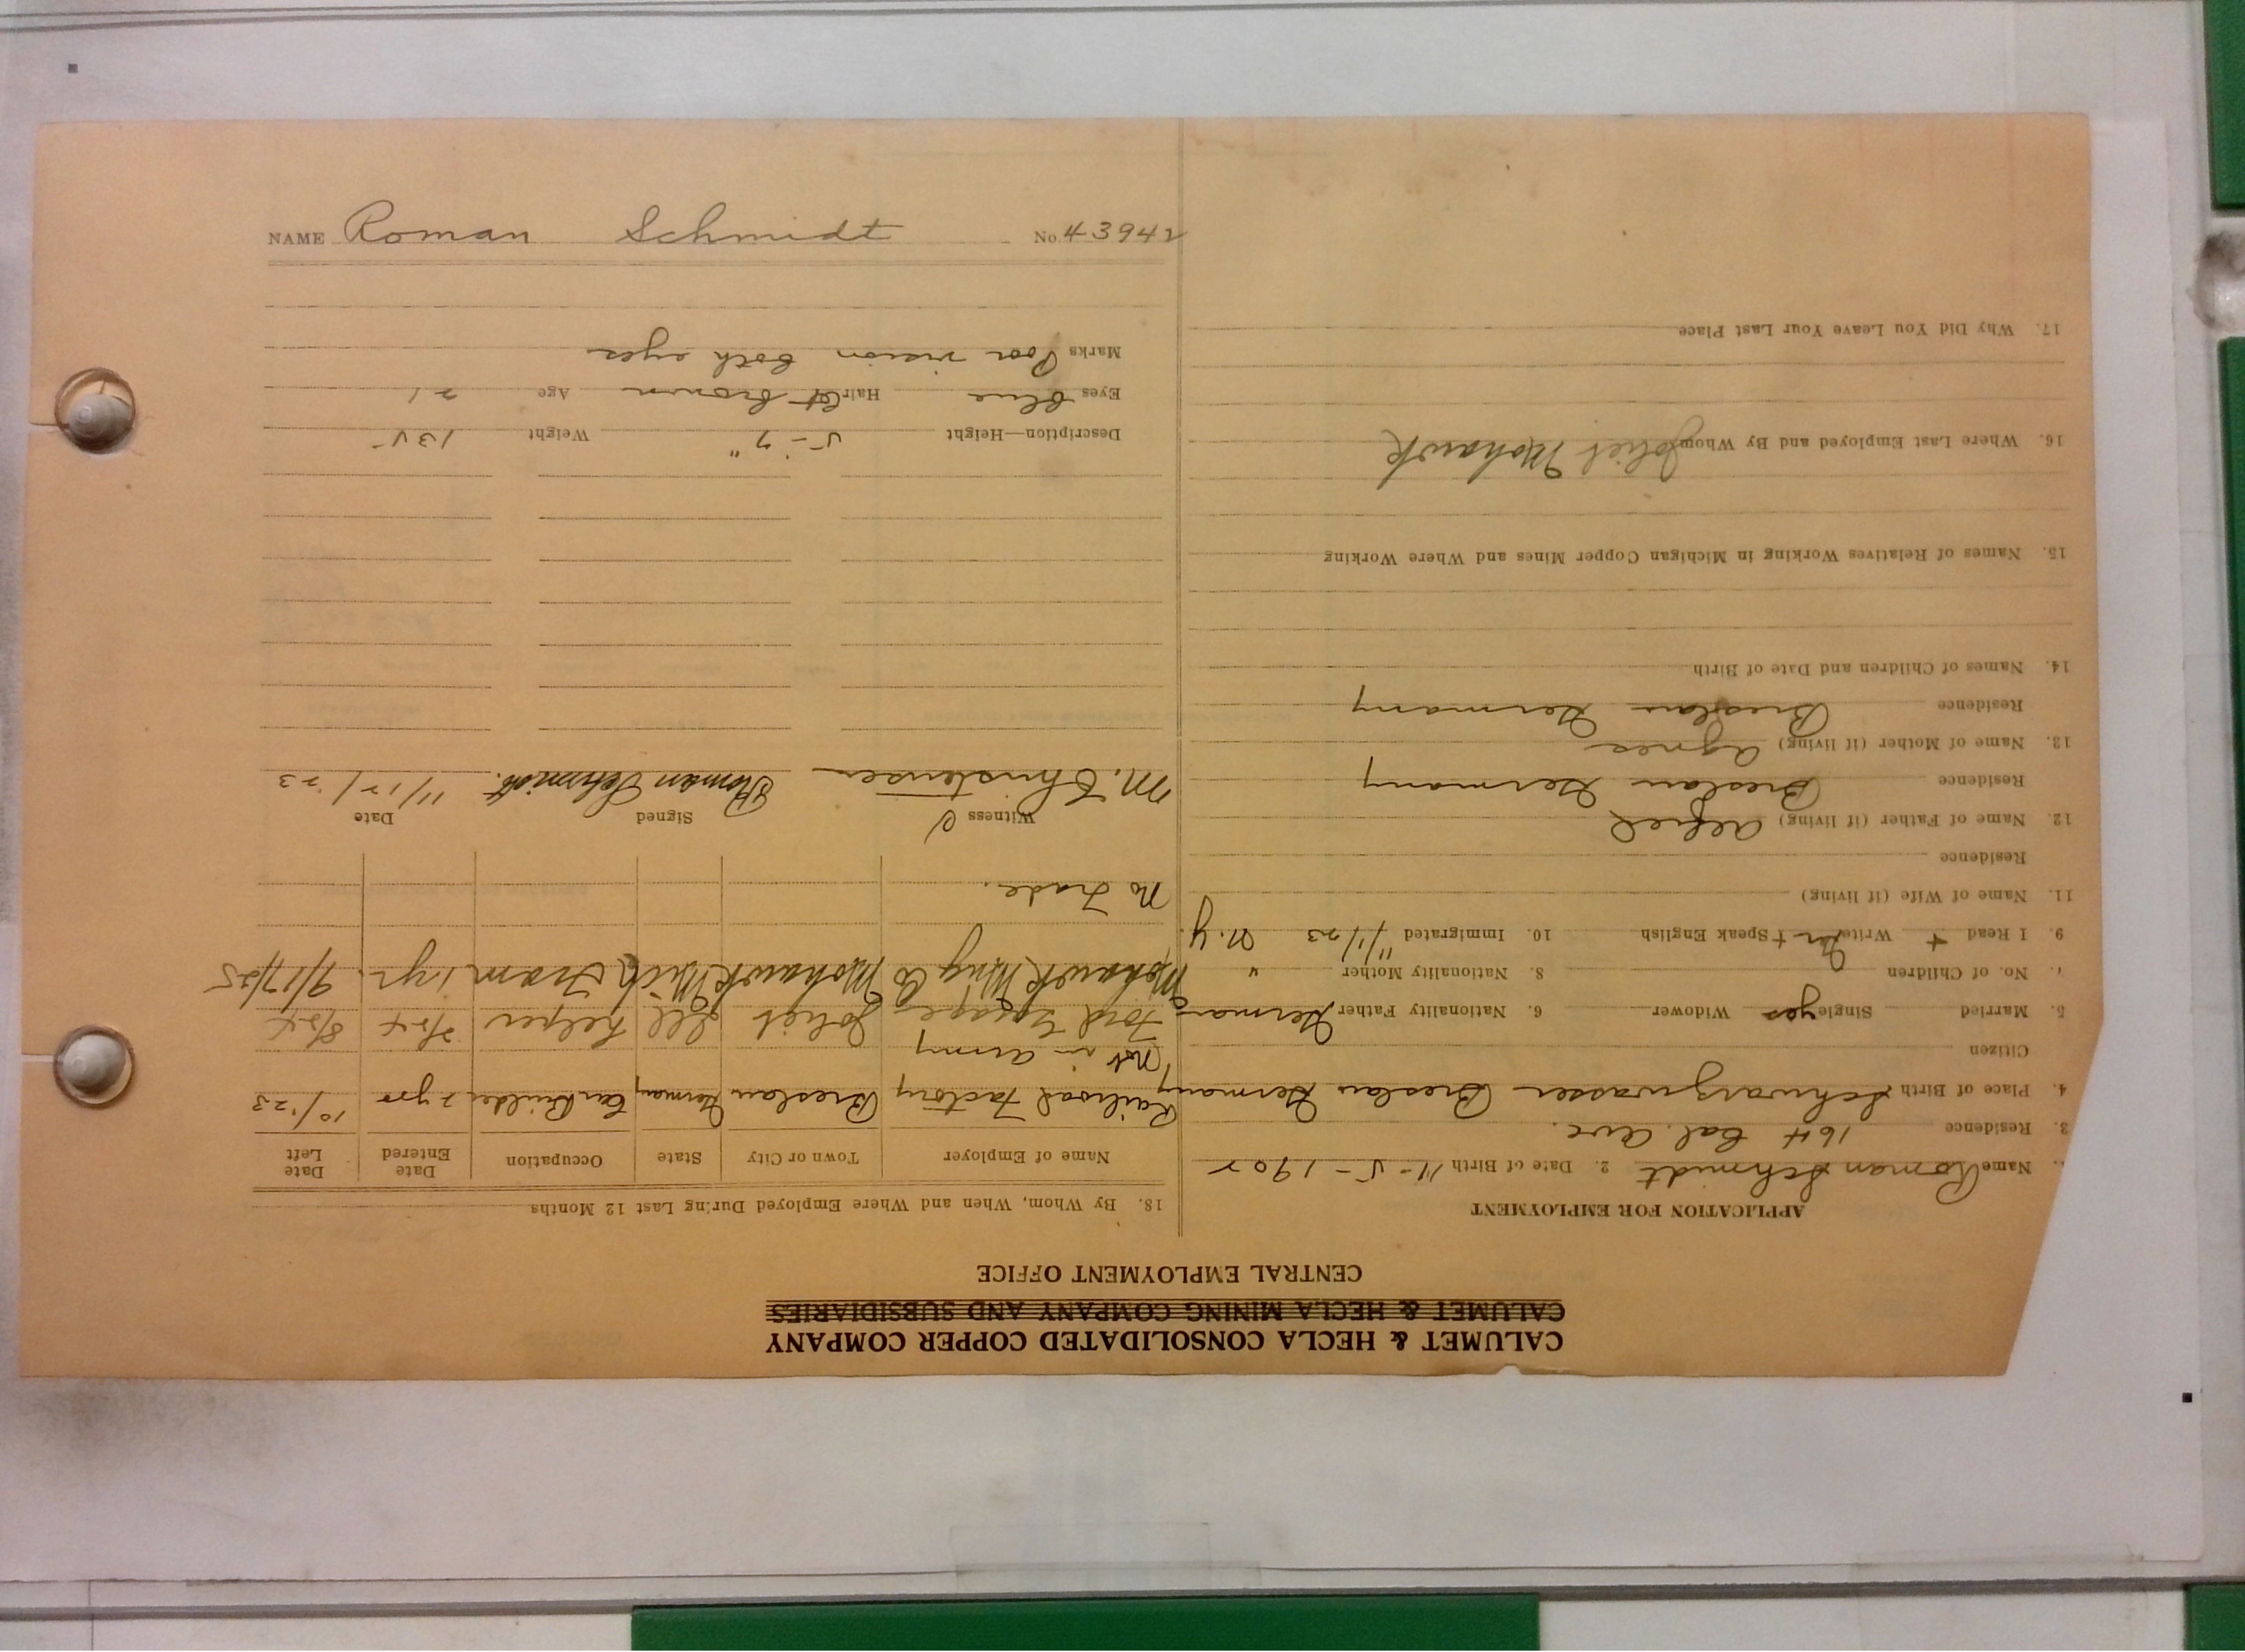 NAME Roman Schmidt No. 43942
CALUMET & HECLA CONSOLIDATED COPPER COMPANY
CALUMET & HECLA MINING COMPANY AND SUBSIDIARIES
CENTRAL EMPLOYMENT OFFICE
APPLICATION FOR EMPLOYMENT
Name Roman Schmidt 2. Date of Birth 11-5-1902
3. Residence 1614 Cal. Ave.
4. Place of Birth Schwarzwasser Breslau Germany
Citizen
5. Married Single yes Widower 6. Nationality Father German
7. No. of Children 8. Nationality Mother "
9. I Read + Write + Speak English 10. Immigrated 11/1/23 N.Y.
11. Name of Wife (if living)
Residence
12. Name of Father (if living) Alfred
Residence Breslau Germany
13. Name of Mother (if living) Agnes
Residence Breslau Germany
14. Names of Children and Date of Birth
15. Names of Relatives Working in Michigan Copper Mines and Where Working
16. Where Last Employed and By Whom Joliet Mohawk
17. Why Did You Leave Your Last Place
18. By Whom, When and Where Employed During Last 12 Months
Name of Employer Town or City State Occupation Date Entered Date Left
Railroad Factory Breslau Germany Car Builder 2 yrs 10/'23
(Not in army
Ford Garage Joliet Ill helper 8/24
Mohawk Mng Co Mohawk Mich Tram 1 yr. 9/17/25
No trade.
Witness Signed Date
M. Christensen Roman Schmidt. 11/12/23
Description—Height 5-7" Weight 135
Eyes blue Hair Lt brown Age 21
Marks Poor vision both eyes